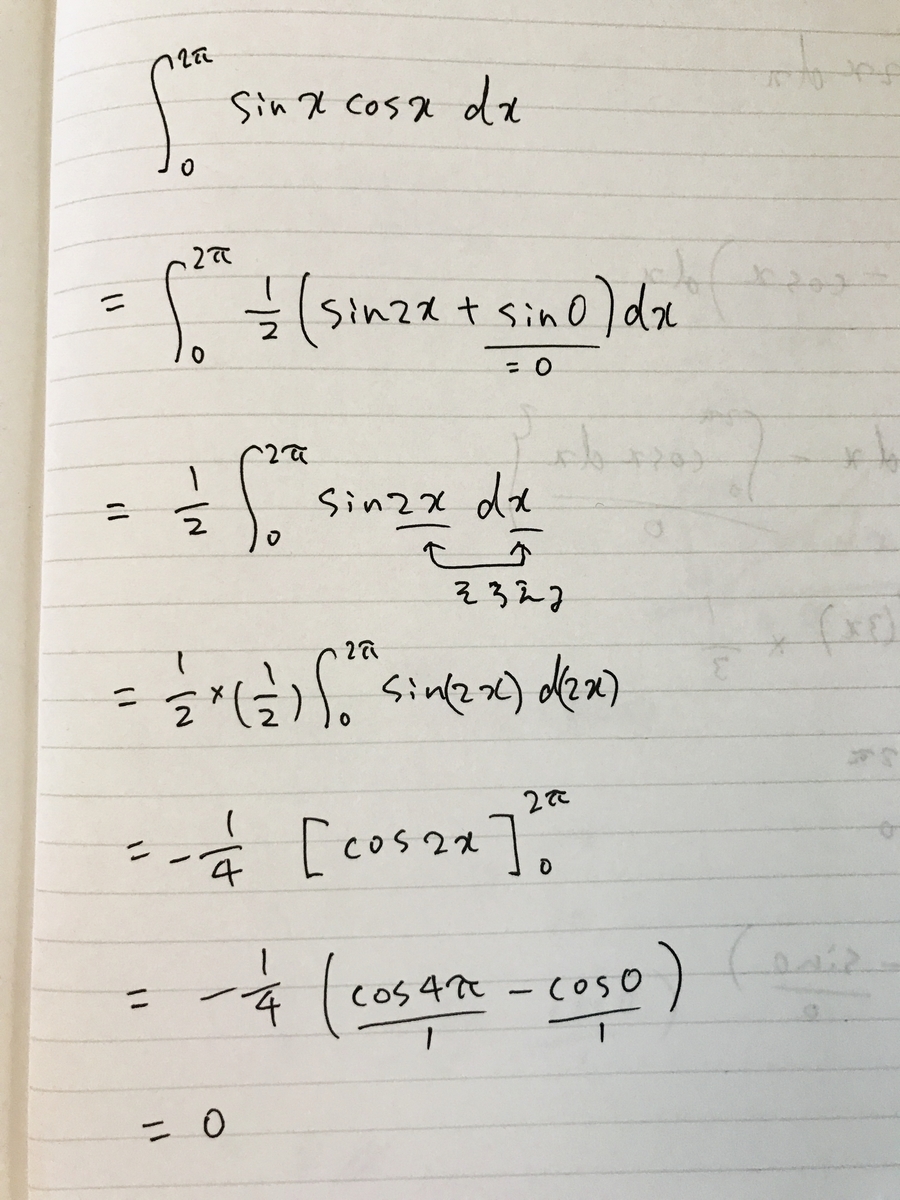 ∫₀^{2π} sin x cos x dx
= ∫₀^{2π} 1/2 (sin2x + sin0) dx
= 0
= 1/2 ∫₀^{2π} sin2x dx
そろえる
= 1/2 × (1/2) ∫₀^{2π} sin(2x) d(2x)
= -1/4 [cos 2x]₀^{2π}
= -1/4 (cos4π - cos0)
1 1
= 0